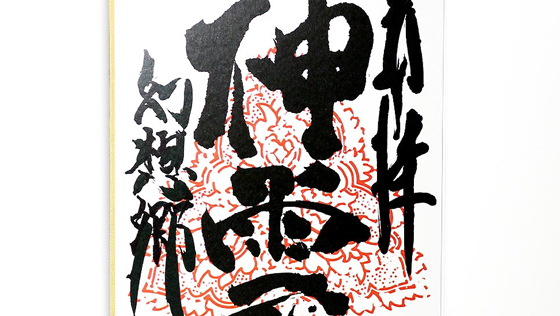 奉拝
神
幻想郷